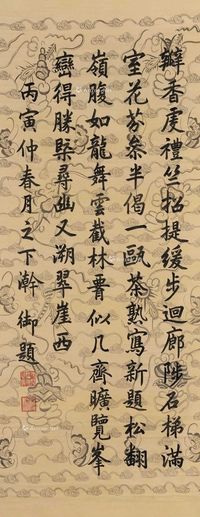 瓣香虔禮竺招提緩步迴廊陟石梯滿
室花芬參半偈一甌茶熟寫新題松翻
嶺腹如龍舞雲截林似几齊曠覽峯
巒得勝槩尋幽又溯翠崖西
丙寅仲春月之下澣御題